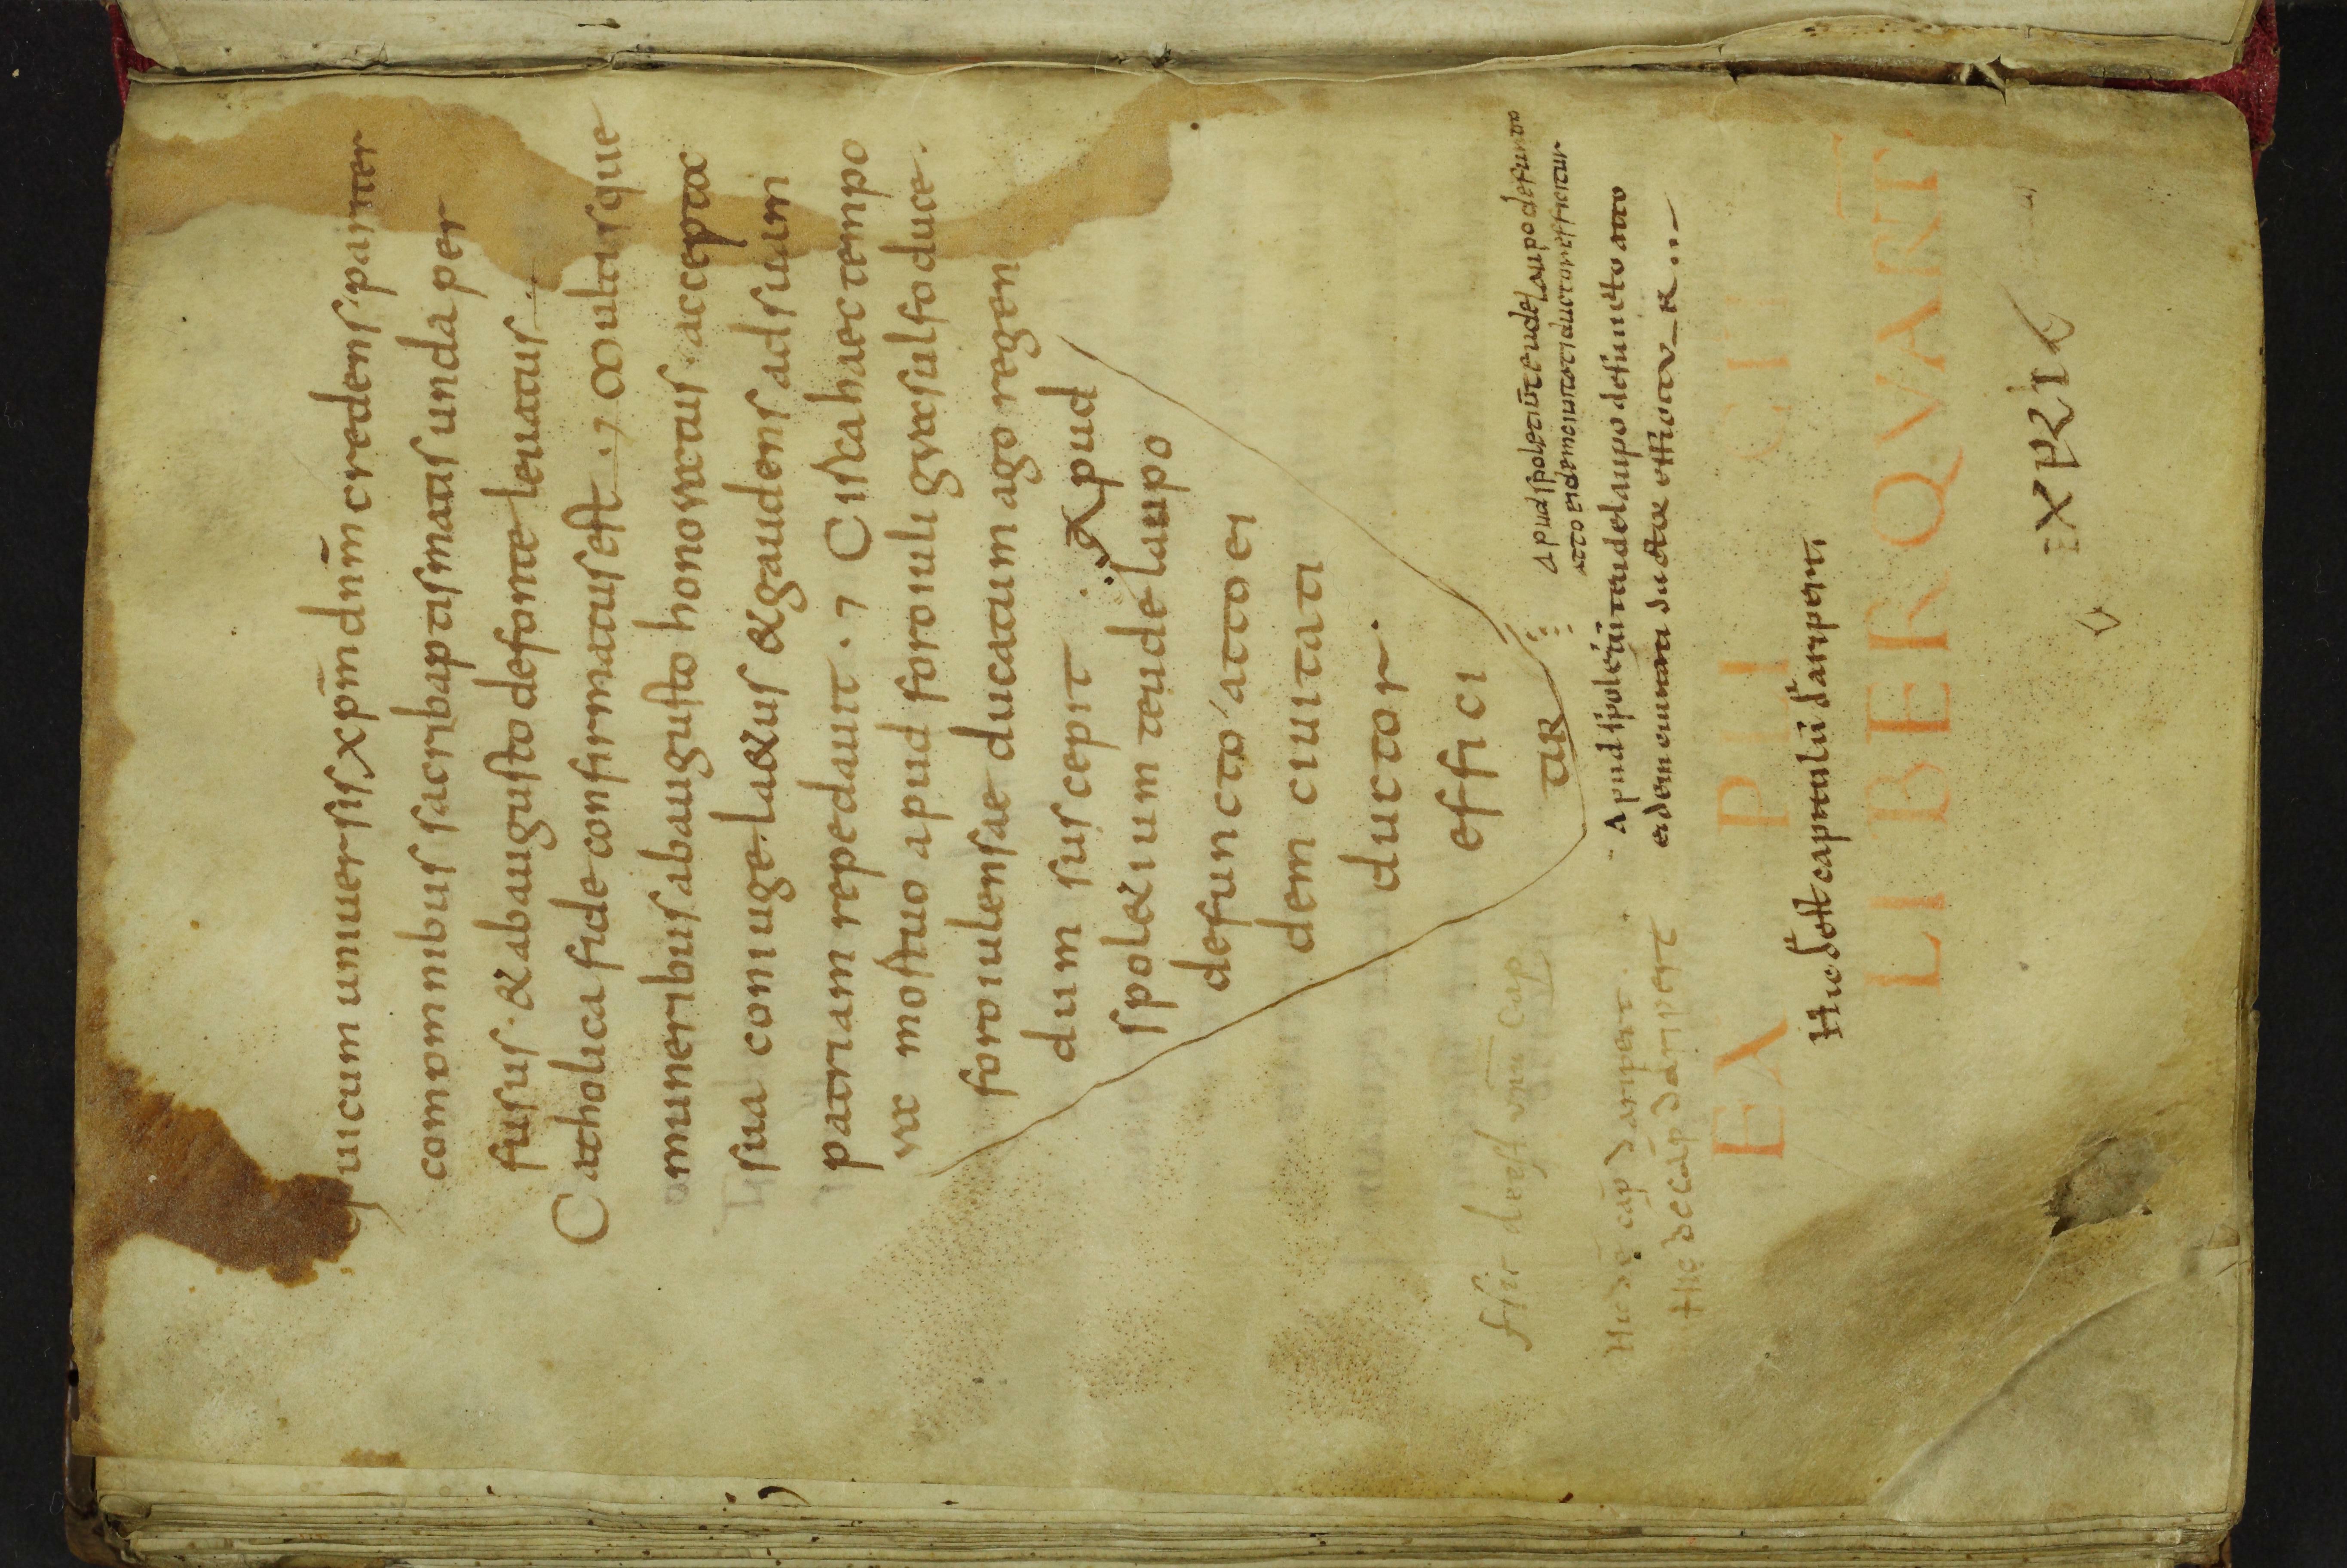 qui cum uniuersis xpm̄ dnm̄ credens pariter
cum omnibus sacri baptismatis unda per
fusus · & ab augusto de fonte leuatus
Catholica fide confirmatus est · 7 Multisque
muneribus ab augusto honoratus accepta
sua coniuge laetus & gaudens ad suam
patriam repedauit · 7 Cista haec tempo
ra mostuo apud foroiuli graxsulfo duce ·
foroiulensae ducatum ago regen
dum suscepit : Apud
spoletium teudelaupo
defuncto atto ei
dem ciuitati
ductor ·
effici
tur
Apud spoletiū teudelaupo defuncto
atto eidem ciuitati ductor efficitur
Apud spoletiū teudelaupo defuncto atto
eidem ciuitati ductor efficitur
Hic deest unū cap
Hic deē cap
Hic de cap
EX PLI CI T
Hic deest capitulū
LIBER QVART
XPRI